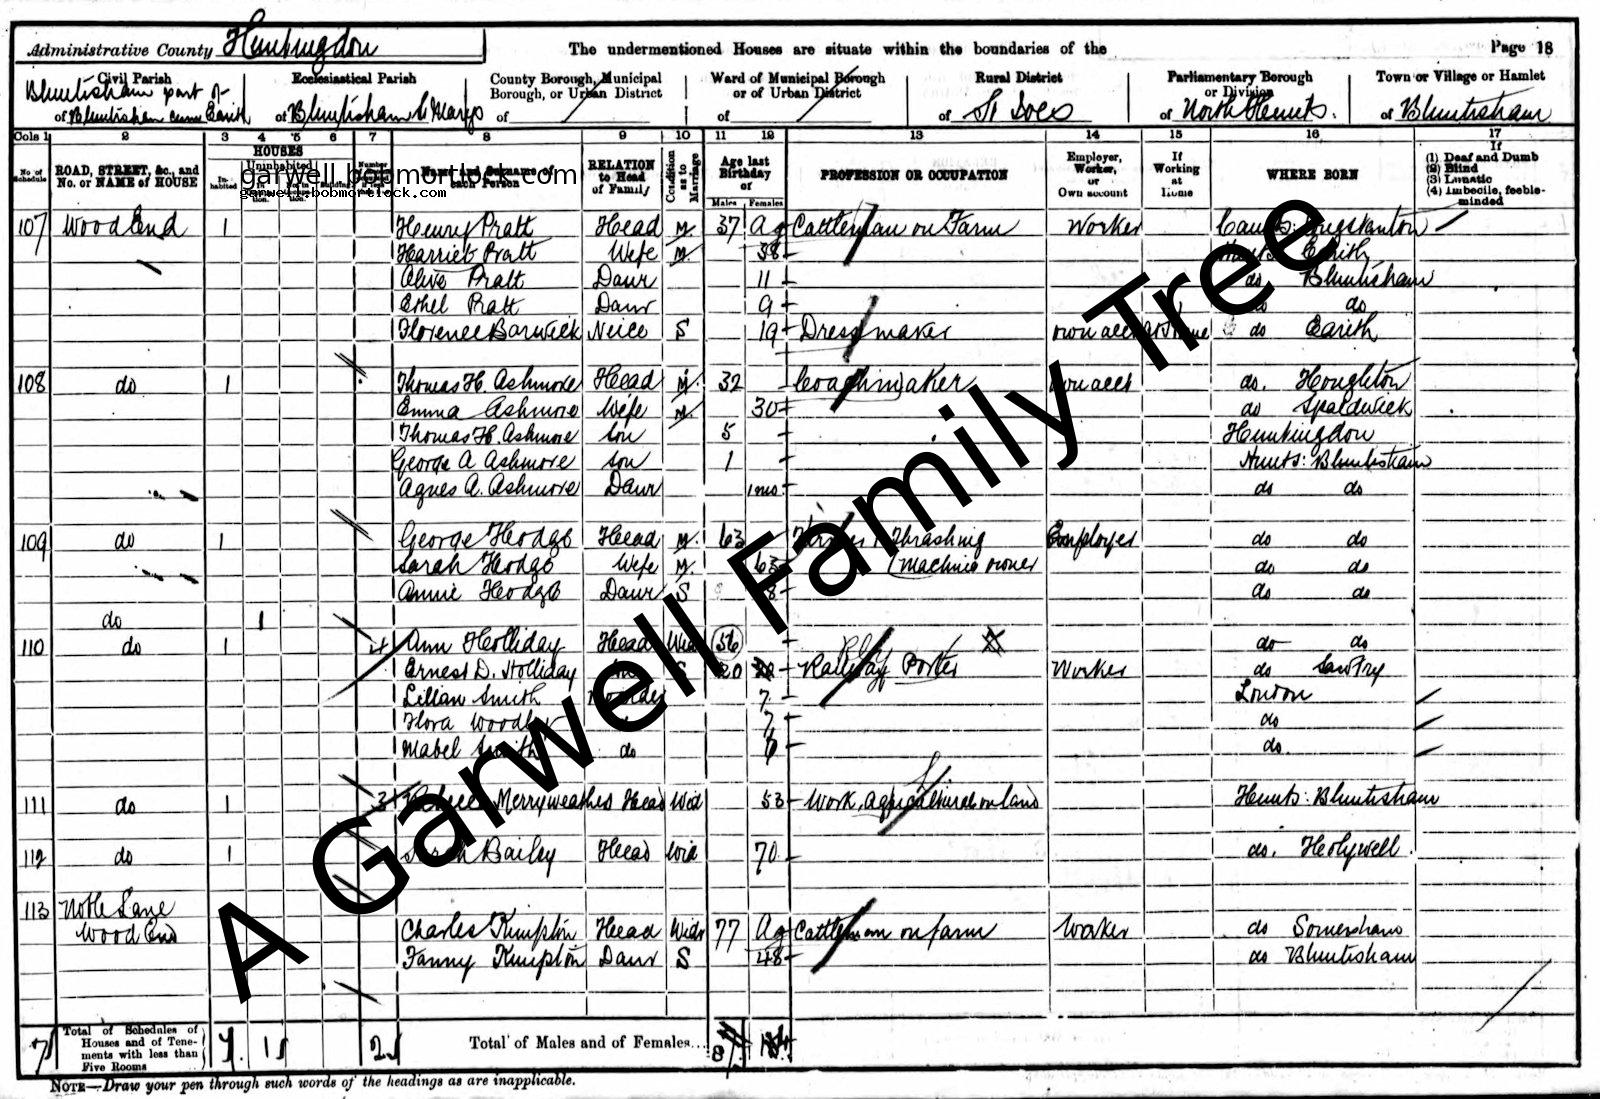 Administrative County Huntingdon
The undermentioned Houses are situate within the boundaries of the
Page 18
Civil Parish
Bluntisham part of
of Bluntisham cum Earith
Ecclesiastical Parish
of Bluntisham St Marys
County Borough, Municipal
Borough, or Urban District
of
Ward of Municipal Borough
or of Urban District
of
Rural District
of St Ives
Parliamentary Borough
or Division
of North Hunts.
Town or Village or Hamlet
of Bluntisham
Cols 1 2 3 4 5 6 7 8 9 10 11 12 13 14 15 16 17
No. of Schedule
ROAD, STREET, &c., and
No. or NAME of HOUSE
HOUSES
Inhabited
Uninhabited
Name and Surname of
each Person
RELATION
to Head
of Family
Condition as to Marriage
Age last
Birthday
of
Males Females
PROFESSION OR OCCUPATION
Employer,
Worker,
or
Own account
If
Working
at
Home
WHERE BORN
If
(1) Deaf and Dumb
(2) Blind
(3) Lunatic
(4) Imbecile, feeble-
minded
garwell.bobmortlock.com
garwell.bobmortlock.com
107 Wood End 1 Henry Pratt Head M 37 Ag Cattleman on Farm Worker Cambs: Longstanton
Harriet Pratt Wife M 38 Hunts: Earith
Olive Pratt Daur 11 do Bluntisham
Ethel Pratt Daur 9 do do
Florence Barwick Neice S 19 Dressmaker own acct At Home do Earith
108 do 1 Thomas H. Ashmore Head M 32 Coachmaker own acct do. Houghton
Emma Ashmore Wife M 30 do Spaldwick
Thomas H. Ashmore Son 5 Huntingdon
George A Ashmore Son 1 Hunts: Bluntisham
Agnes A. Ashmore Daur 1 mo. do do
109 do 1 George Hodge Head M 63 Thrashing Employer do do
Machine owner
Sarah Hodge Wife M 63 do do
Annie Hodge Daur S do do
do 1
110 do 1 4 Ann Holliday Head Wid 56 do do
Ernest D. Holliday Son S 20 Railway Porter Worker do Sawtry
Lillan Smith Boarder 7 London
Flora 7 do
Mabel Smith do 6 do.
111 do 1 3 Merryweather Head Wid 53 Work, Agricultural on land Hunts: Bluntisham
112 do 1 Sarah Bailey Head Wid 70 do. Holywell
113 Noble Lane
Wood End Charles Kimpton Head Widr 77 Ag Cattleman on farm Worker do Somersham
Fanny Kimpton Daur S 48 do Bluntisham
A Garwell Family Tree
7 Total of Schedules of
Houses and of Tene-
ments with less than
Five Rooms
7 1 2
Total of Males and of Females...
8
NOTE—Draw your pen through such words of the headings as are inapplicable.